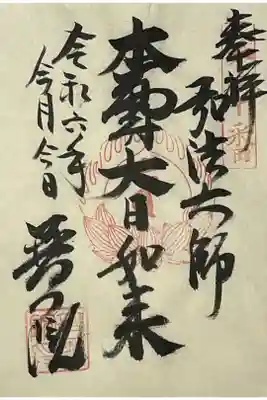 奉拝
弘法大師
本尊大日如来
令和六年
今月今日